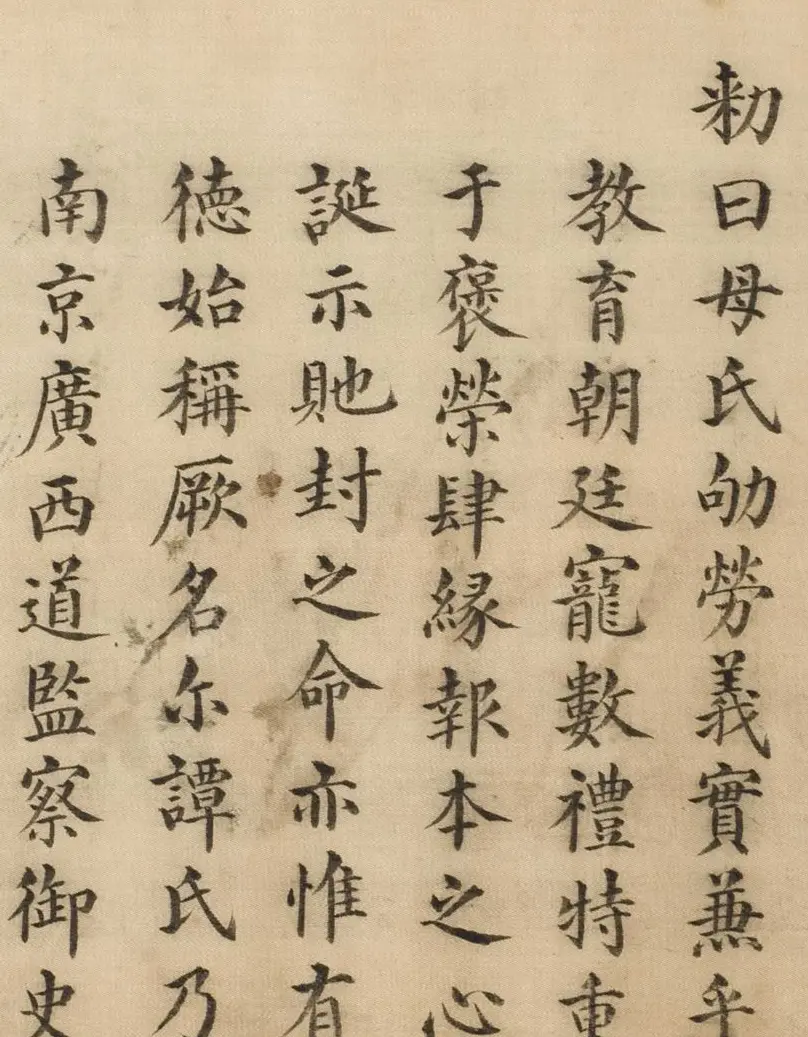 勑曰母氏劬勞義實兼乎
教育朝廷寵數禮特重
于褒榮肆緣報本之心
誕示貤封之命亦惟有
德始稱厥名尔譚氏乃
南京廣西道監察御史